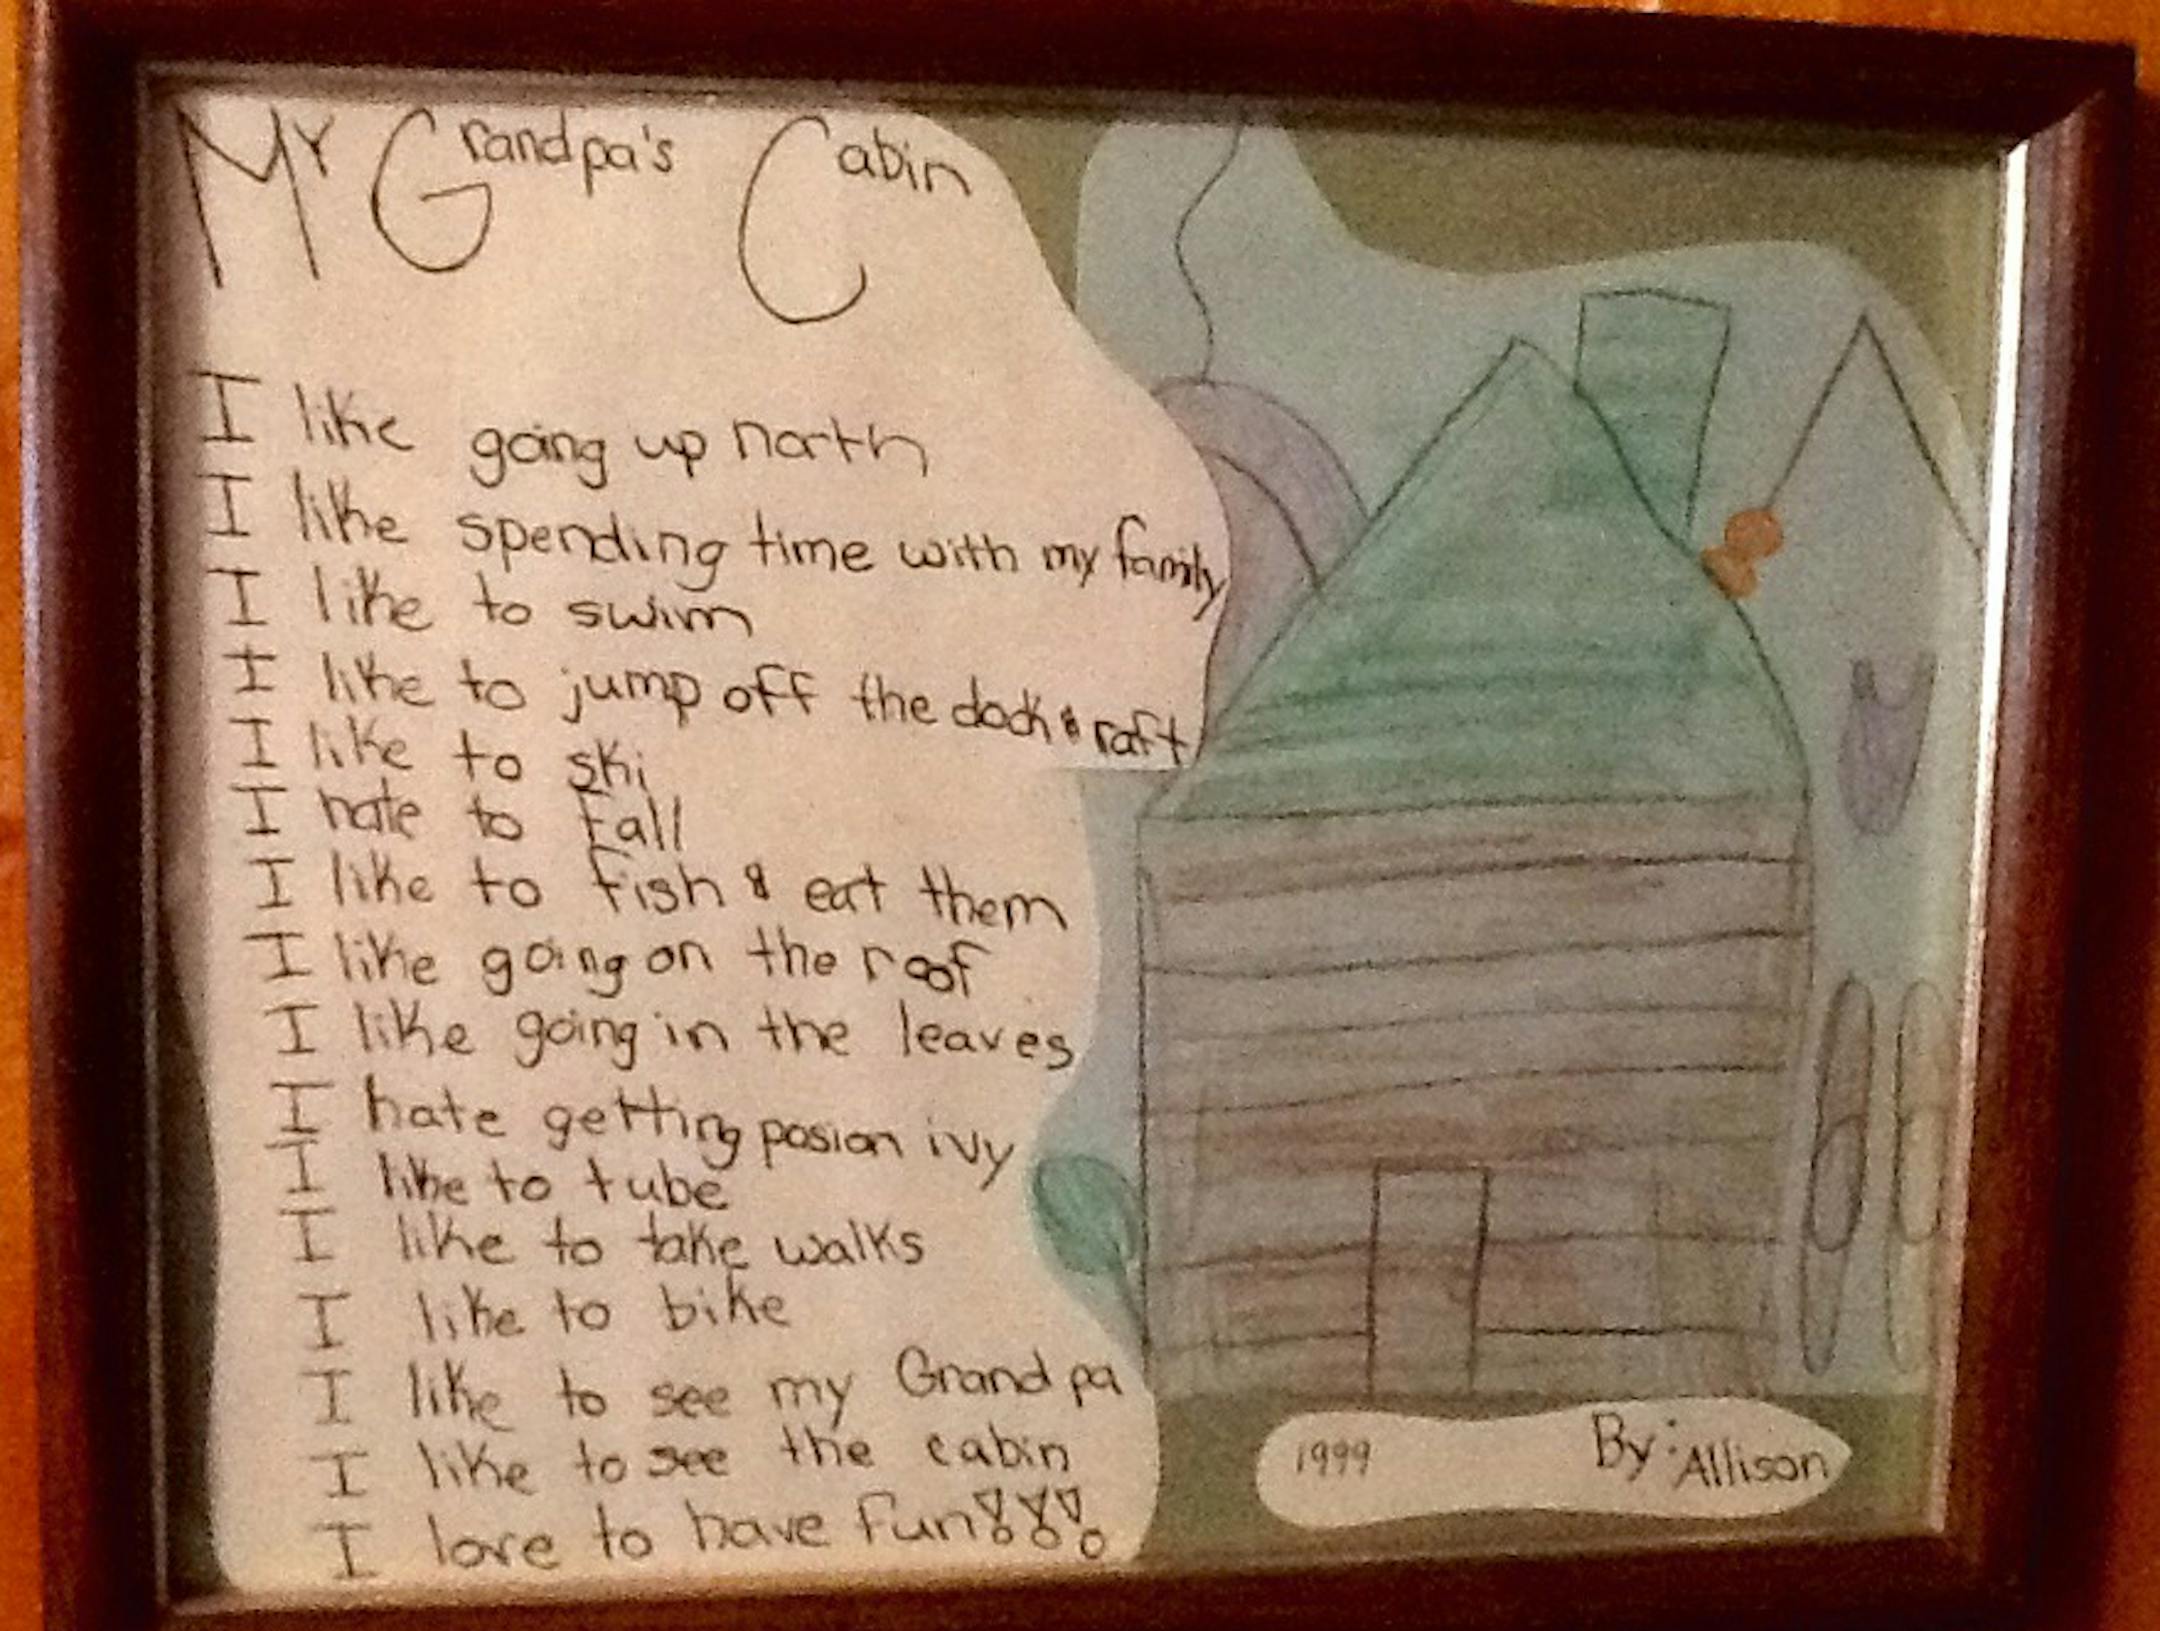 My Grandpa's Cabin
I like going up north
I like spending time with my family
I like to swim
I like to jump off the dock & raft
I like to ski
I hate to fall
I like to fish & eat them
I like going on the roof
I like going in the leaves
I hate getting posion ivy
I like to tube
I like to take walks
I like to bike
I like to see my Grandpa
I like to see the cabin
I love to have fun!!!
1999 By: Allison